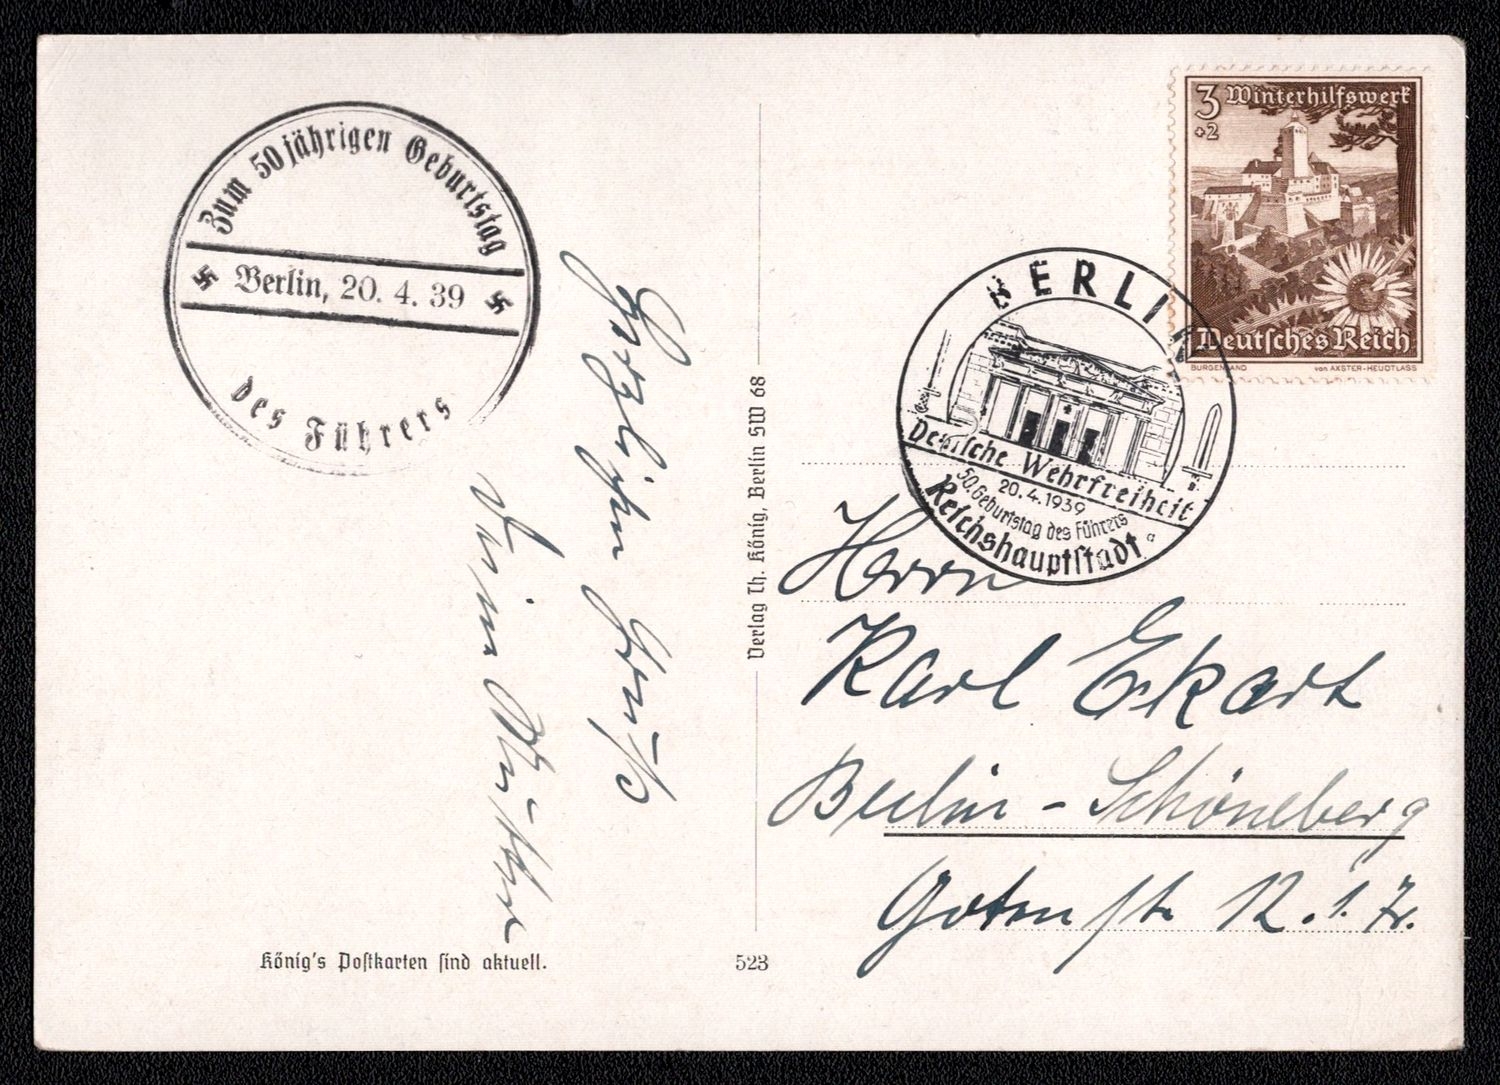 Zum 50jährigen Geburtstag
Berlin, 20. 4. 39
des Führers
3 Winterhilfswerk
+2
Deutsches Reich
BURGENLAND von AXSTER-HEUDTLASS
BERLIN
Deutsche Wehrfreiheit
20.4.1939
50. Geburtstag des Führers
Reichshauptstadt
a
Herzlichen Gruß
Verlag Th. König, Berlin SW 68
Herrn
Karl Ekart
Berlin-Schöneberg
Gotenstr. 12.1.
König's Postkarten sind aktuell.
523